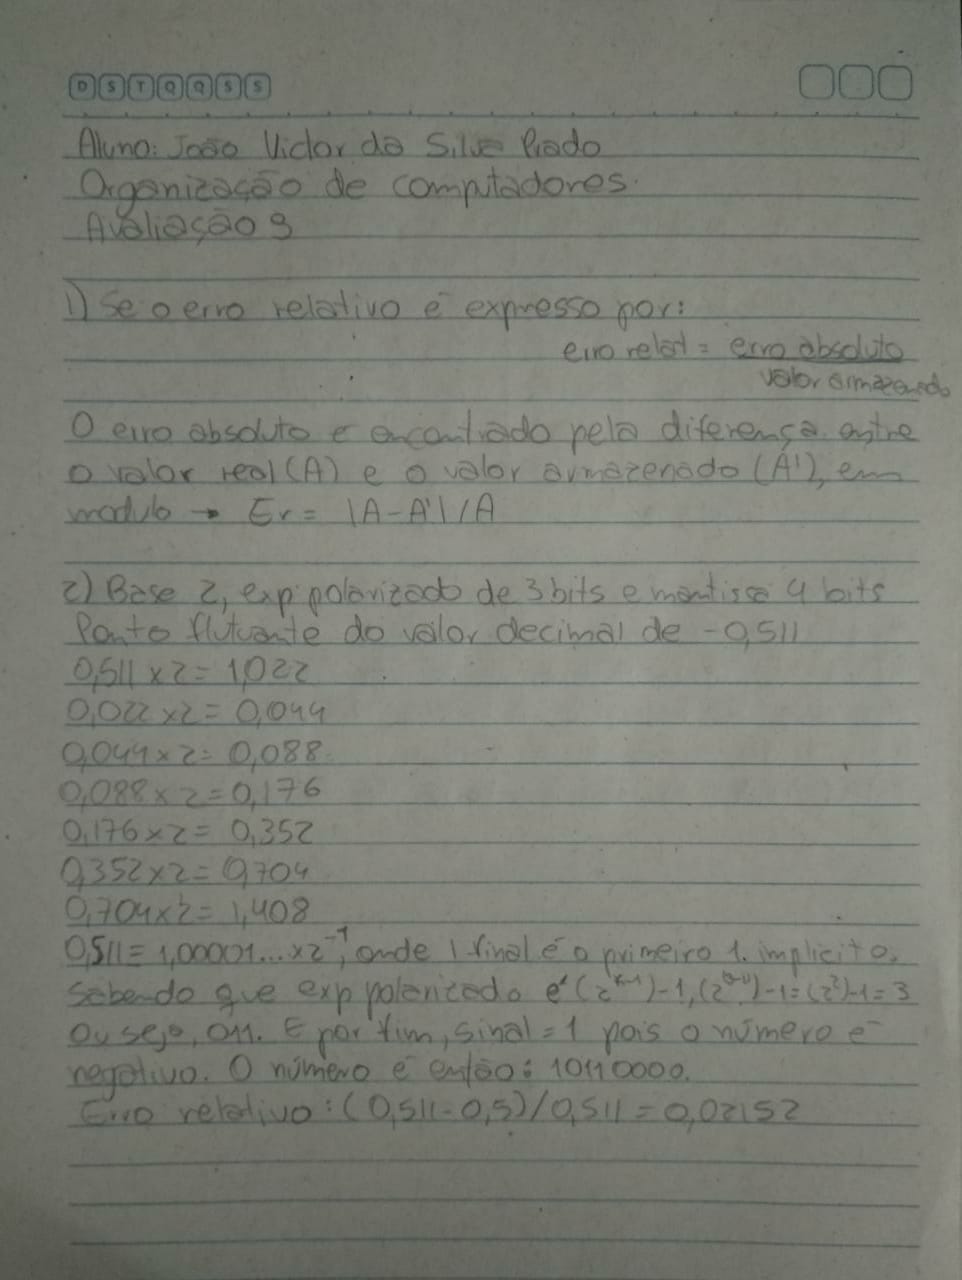 D S T Q Q S S
Aluno: João Victor da Silva Prado
Organização de computadores.
Avaliação 9
1) Se o erro relativo é expresso por:
erro relat = erro absoluto
valor armazenado
O erro absoluto é encontrado pela diferença entre
o valor real (A) e o valor armazenado (A'), em
modulo → Er = |A-A'|/A
2) Base 2, exp polarizado de 3 bits e mantissa 4 bits
Ponto flutuante do valor decimal de -0,511
0,511 x 2 = 1,022
0,022 x 2 = 0,044
0,044 x 2 = 0,088
0,088 x 2 = 0,176
0,176 x 2 = 0,352
0,352 x 2 = 0,704
0,704 x 2 = 1,408
0,511 = 1,00001... x 2⁻¹, onde 1 final é o primeiro 1. implicito.
Sabendo que exp polarizado é (2ᵏ⁻¹)-1, -1 = (2²)-1 = 3
Ou seja, 011. E por fim, sinal = 1 pois o número é
negativo. O número é então: 10110000.
Erro relativo: (0,511-0,5)/0,511 = 0,02152